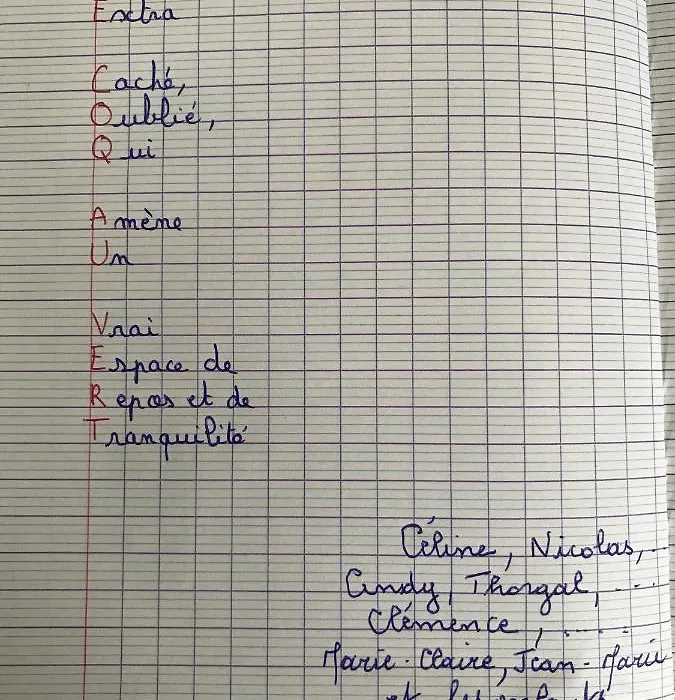 Extra
Caché,
Oublié,
Qui
Amène
Un
Vrai
Espace de
Repos et de
Tranquilité
Céline, Nicolas, ..
Cindy, Thorgal, ...
Clémence, .....
Marie-Claire, Jean-Marie
et les